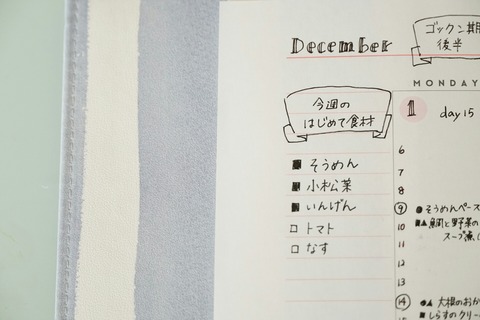 December
ゴックン期
後半
MONDAY
今週の
はじめて食材
1 day 15
■ そうめん
■ 小松菜
■ いんげん
□ トマト
□ なす
6
7
8
9 ●そうめんペース
10 ■▲鯛と野菜の
スープ煮(
11
12
13
14 ●▲大根のおか
■しらすのクリー